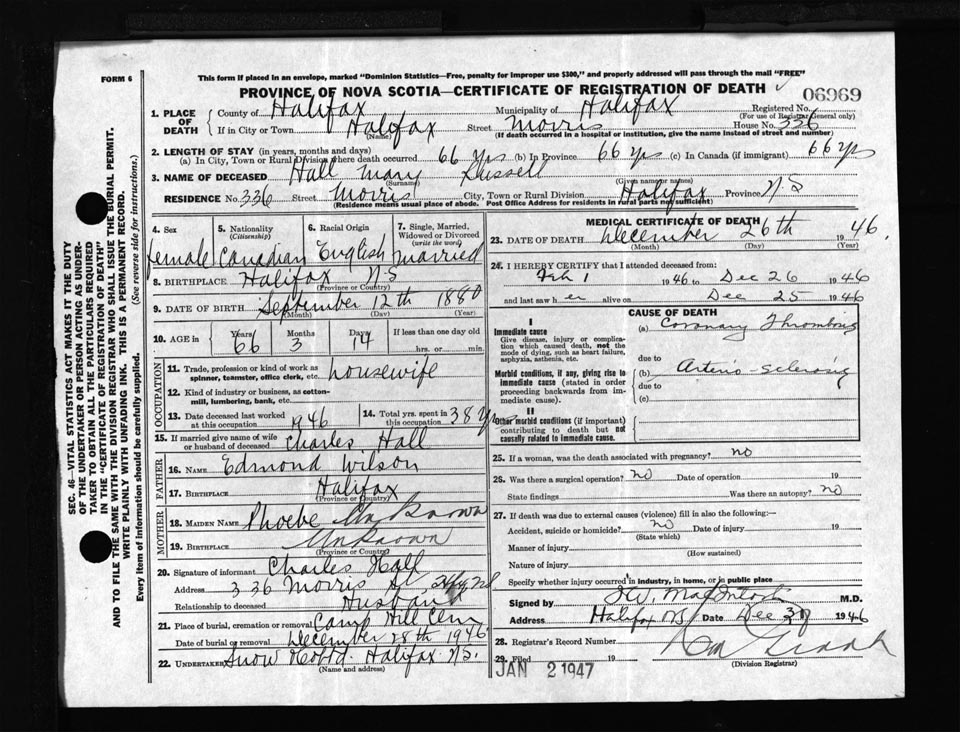 FORM 6
This form if placed in an envelope, marked "Dominion Statistics—Free, penalty for improper use $300," and properly addressed will pass through the mail "FREE"
PROVINCE OF NOVA SCOTIA—CERTIFICATE OF REGISTRATION OF DEATH
06969
1. PLACE OF DEATH County of Halifax Municipality of Halifax Registered No. (For use of Registrar General only)
If in City or Town Halifax (Name) Street Morris House No. 336
(If death occurred in a hospital or institution, give the name instead of street and number)
2. LENGTH OF STAY (in years, months and days)
(a) In City, Town or Rural Division where death occurred 66 yrs (b) In Province 66 yrs (c) In Canada (if immigrant) 66 yrs
3. NAME OF DECEASED Hall Mary Russell
(Surname) (Given name or names)
RESIDENCE No. 336 Street Morris City, Town or Rural Division Halifax Province N.S
(Residence means usual place of abode. Post Office Address for residents in rural parts not sufficient)
4. Sex 5. Nationality (Citizenship) 6. Racial Origin 7. Single, Married, Widowed or Divorced (write the word)
female Canadian English married
8. BIRTHPLACE Halifax N.S
(Province or Country)
9. DATE OF BIRTH September 12th 1880
(Month) (Day) (Year)
10. AGE in Years Months Days If less than one day old
66 3 14 hrs. or min.
OCCUPATION
11. Trade, profession or kind of work as spinner, teamster, office clerk, etc. housewife
12. Kind of industry or business, as cotton-mill, lumbering, bank, etc.
13. Date deceased last worked at this occupation 1946
14. Total yrs. spent in this occupation 38 yrs
15. If married give name of wife or husband of deceased Charles Hall
FATHER
16. NAME Edmond Wilson
17. BIRTHPLACE Halifax
(Province or Country)
MOTHER
18. MAIDEN NAME Phoebe Unknown
19. BIRTHPLACE Unknown
(Province or Country)
20. Signature of informant Charles Hall
Address 336 Morris St.
Relationship to deceased Husband
21. Place of burial, cremation or removal Camp Hill Cem
Date of burial or removal December 28th 1946
22. UNDERTAKER Snow Halifax N.S.
(Name and address)
MEDICAL CERTIFICATE OF DEATH
23. DATE OF DEATH December 26th 1946.
(Month) (Day)
24. I HEREBY CERTIFY that I attended deceased from:
Feb 1 1946 to Dec 26 1946
and last saw h er alive on Dec 25 1946
CAUSE OF DEATH
I
Immediate cause
Give disease, injury or complication which caused death, not the mode of dying, such as heart failure, asphyxia, asthenia, etc.
(a) Coronary Thrombosis
due to
Morbid conditions, if any, giving rise to immediate cause (stated in order proceeding backwards from immediate cause).
(b) Arterio-sclerosis
due to
(c)
II
Other morbid conditions (if important) contributing to death but not causally related to immediate cause.
25. If a woman, was the death associated with pregnancy? no
26. Was there a surgical operation? no Date of operation 19
State findings Was there an autopsy? no
27. If death was due to external causes (violence) fill in also the following:—
Accident, suicide or homicide? no Date of injury 19
(State which)
Manner of injury
(How sustained)
Nature of injury
Specify whether injury occurred in industry, in home, or in public place
Signed by M.D.
Address Halifax NS Date Dec 1946
28. Registrar's Record Number
29. Filed 19
JAN 2 1947
(Division Registrar)
SEC. 46—VITAL STATISTICS ACT MAKES IT THE DUTY OF THE UNDERTAKER OR PERSON ACTING AS UNDERTAKER TO OBTAIN ALL THE PARTICULARS REQUIRED IN THE "CERTIFICATE OF REGISTRATION OF DEATH" AND TO FILE THE SAME WITH THE DIVISION REGISTRAR WHO SHALL ISSUE THE BURIAL PERMIT.
WRITE PLAINLY WITH UNFADING INK. THIS IS A PERMANENT RECORD.
Every item of information should be carefully supplied. (See reverse side for instructions.)